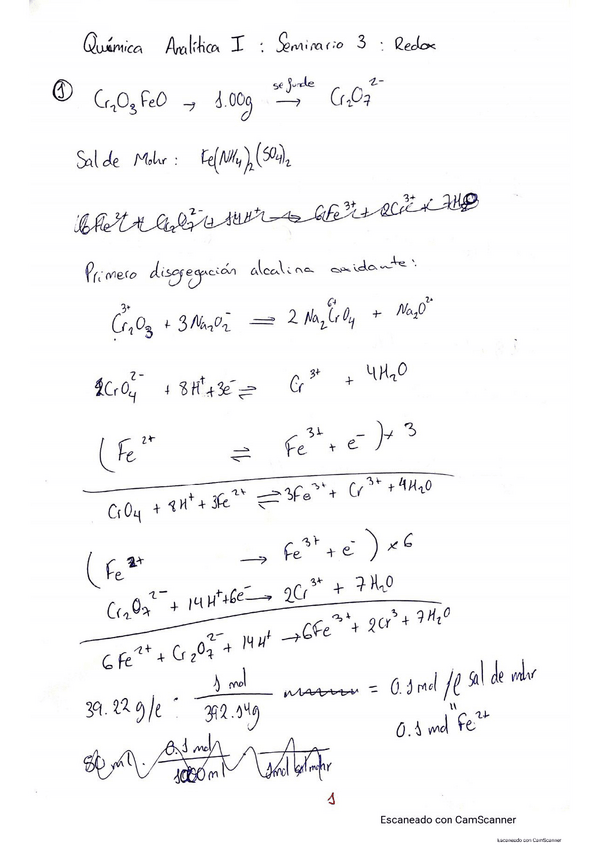 Química Analítica I : Seminario 3 : Redox
① Cr₂O₃FeO → 1.00g se funde → Cr₂O₇²⁻
Sal de Mohr : Fe(NH₄)₂(SO₄)₂
6Fe²⁺ + Cr₂O₇²⁻ + 14H⁺ → 6Fe³⁺ + 2Cr³⁺ + 7H₂O
Primero disgregación alcalina oxidante :
Cr₂³⁺O₃ + 3Na₂O₂⁻ = 2Na₂Cr⁶⁺O₄ + Na₂O²⁺
CrO₄²⁻ + 8H⁺ + 3e⁻ ⇌ Cr³⁺ + 4H₂O
(Fe²⁺ ⇌ Fe³⁺ + e⁻) × 3
CrO₄ + 8H⁺ + 3Fe²⁺ ⇌ 3Fe³⁺ + Cr³⁺ + 4H₂O
(Fe²⁺ → Fe³⁺ + e⁻) × 6
Cr₂O₇²⁻ + 14H⁺ + 6e⁻ → 2Cr³⁺ + 7H₂O
6Fe²⁺ + Cr₂O₇²⁻ + 14H⁺ → 6Fe³⁺ + 2Cr³ + 7H₂O
39.22 g/l · 1 mol / 392.14g = 0.1 mol/l sal de mohr
"
0.1 mol Fe²⁺
80 ml · 0.1 mol / 1000 ml 1 mol sal mohr
1
Escaneado con CamScanner
Escaneado con CamScanner